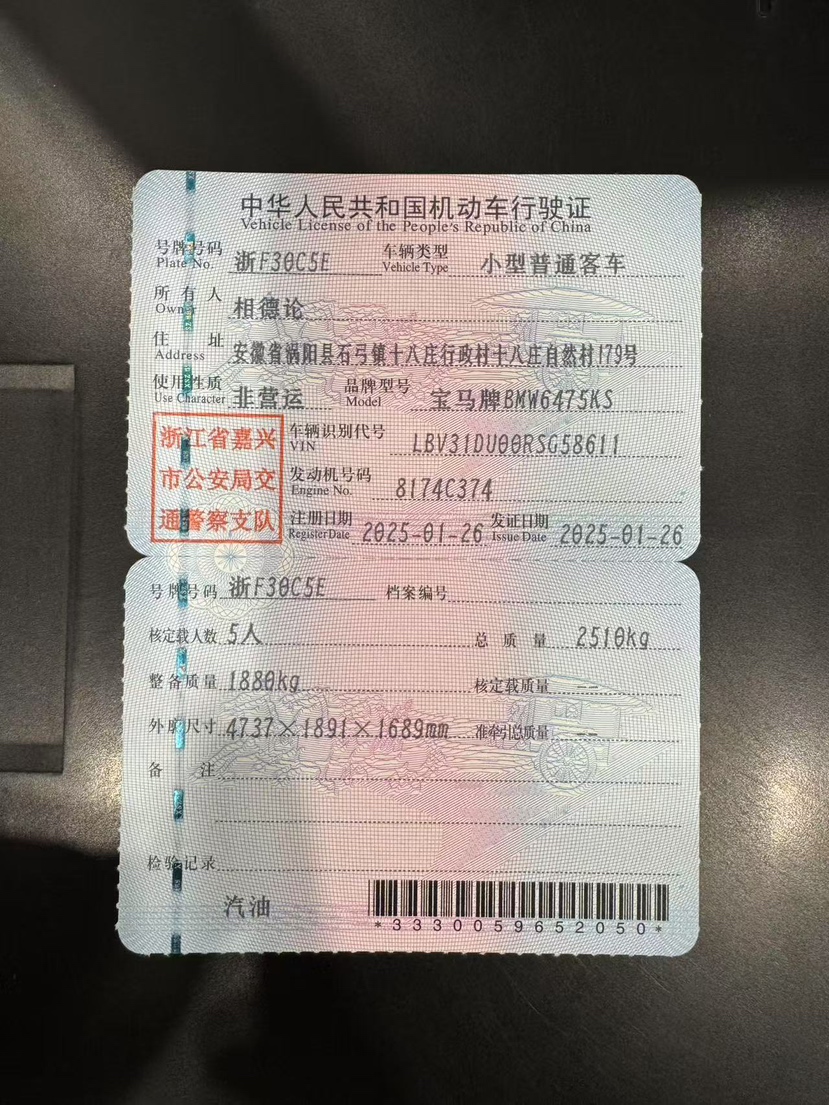 中华人民共和国机动车行驶证
Vehicle License of the People's Republic of China
号牌号码 浙F30C5E 车辆类型 小型普通客车
Plate No. Vehicle Type
所有人 相德论
Owner
住址 安徽省涡阳县石弓镇十八庄行政村十八庄自然村179号
Address
使用性质 非营运 品牌型号 宝马牌BMW6475KS
Use Character Model
浙江省嘉兴
市公安局交
通警察支队
车辆识别代号 LBV31DU00RSG58611
VIN
发动机号码 8174C374
Engine No.
注册日期 2025-01-26 发证日期 2025-01-26
Register Date Issue Date
号牌号码 浙F30C5E 档案编号
核定载人数 5人 总质量 2510kg
整备质量 1880kg 核定载质量 --
外廓尺寸 4737×1891×1689mm 准牵引总质量 --
备注
检验记录
汽油
*3330059652050*